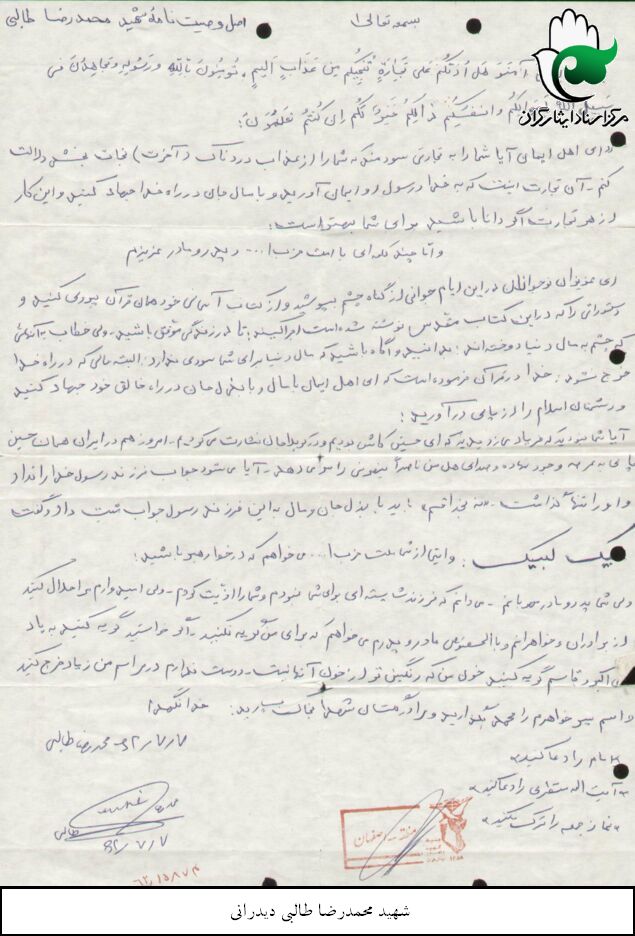 بسمه تعالی
اصل وصیت نامهٔ شهید محمدرضا طالبی
مرکز اسناد ایثارگران
آمنو هل ادلکم علی تجارة تنجیکم من عذاب الیم. تومنون بالله و رسوله و تجاهدون فی
سبیل الله باموالکم و انفسکم ذالکم خیر لکم ان کنتم تعلمون:
«ای اهل ایمان آیا شما را به تجارتی سودمند که شما را از عذاب دردناک (آخرت) نجات بخشد دلالت
کنم - آن تجارت اینست که به خدا و رسول او ایمان آورید و با مال و جان در راه خدا جهاد کنید و این کار
از هر تجارت اگر دانا باشید برای شما بهتر است:
و اما چند کلمه ای با امت حزب ا... و پدر و مادر عزیزم
ای عزیزان نوجوانان در این ایام جوانی از گناه چشم بپوشید و از کتاب آسمانی خود همان قرآن پیروی کنید و
دستوراتی را که در این کتاب مقدس نوشته شده است اجرا کنید: تا در زندگی موفق باشید - ولی خطاب به آنهائی
که چشم به مال دنیا دوخته اند: بدانید و آگاه باشید که مال دنیا برای شما سودی ندارد: البته مالی که در راه خدا
خرج نشود: خدا در قرآن فرموده است که ای اهل ایمان با مال و با بذل جان در راه خالق خود جهاد کنید
و دشمنان اسلام را از پای درآورید:
آیا شما نبودید که فریاد می زدید که ای حسین کاش بودیم و در کربلا جان نثارت می کردیم - امروز هم در ایران همان حسین
پای به عرصه وجود نهاده و صدای هل من ناصراً ینصرنی را سر می دهد - آیا می شود جواب فرزند رسول خدا را نداد
و او را تنها گذاشت - «نه بخدا قسم» باید با بذل جان و مال به این فرزند رسول جواب مثبت داد و گفت
لبیک لبیک: و اینک از شما امت حزب ا... می خواهم که در خط رهبر باشید:
ولی شما پدر و مادر مهربانم - می دانم که فرزند شایسته ای برای شما نبودم و شما را اذیت کردم - ولی امیدوارم مرا حلال کنید
از برادران و خواهرانم و بالخصوص مادر و پدرم می خواهم که برای من گریه نکنید - اگر خواستید گریه کنید به یاد
علی اکبر و قاسم گریه کنید خون من که رنگین تر از خون آنها نیست - دوست ندارم در مراسم من زیاد خرج کنید
اسم پسر خواهرم را محمد بگذارید و مرا در گلستان شهدا بخاک بسپارید: خدا نگهدار
۶۲/۷/۷ محمدرضا طالبی
«امام را دعا کنید»
«آیت اله منتظری را دعا کنید»
«نماز جمعه را ترک نکنید»
طالبی
۶۲/۷/۷
منطقه اصفهان
شهید محمدرضا طالبی دیدرانی